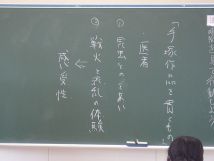 「手塚作品を貫くもの」
医者
① 昆虫とのであい
② 戦火と混乱の体験
感受性